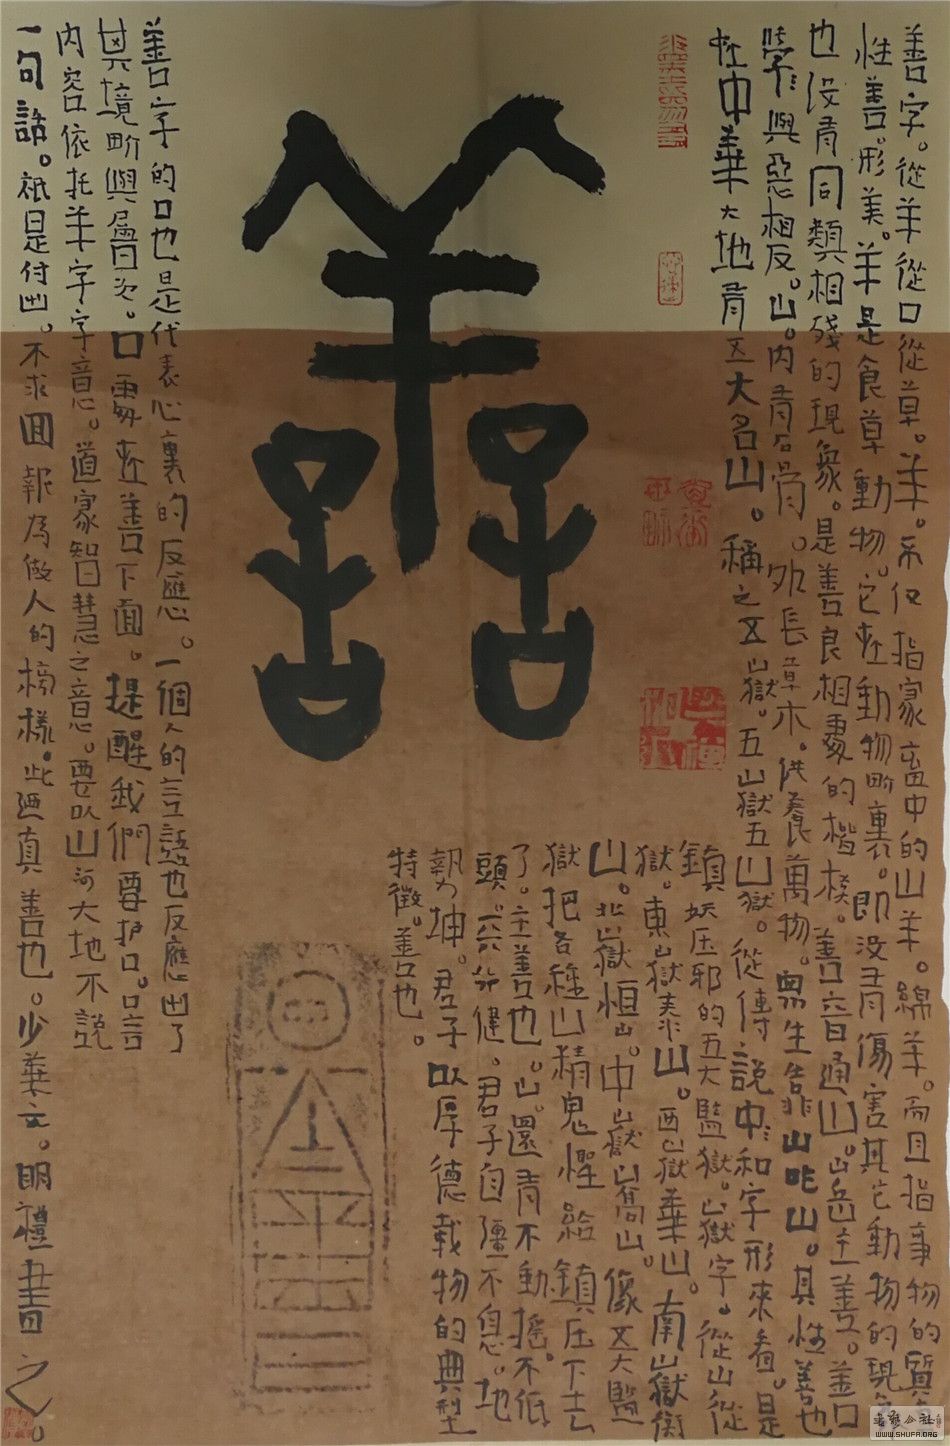 善
善字。從羊從口從草。羊。不仅指家畜中的山羊。綿羊。而且指事物的質
性善。形美。羊是食草動物。它在動物界裏。即没有傷害其它動物的現象
也没有同類相殘的現象。是善良相處的楷模。善音通山。山岳主善。善口
與惡相反。山。内有石骨。外長草木。供養萬物。眾生靠山吃山。其性善也
在中華大地有五大名山。稱之五嶽。五嶽五山獄。從傳說中和字形來看。是
鎮妖压邪的五大監獄。嶽字。從山從
獄。東嶽泰山。西嶽華山。南嶽衡
山。北嶽恒山。中嶽嵩山。像五大監
獄把各種山精鬼怪給鎮压下去
了。主善也。山還有不動摇。不低
頭。天行健。君子自彊不息。地
執坤。君子以厚德载物的典型
特徵。善也。
善字的口也是代表心裏的反應。一個人的言語也反應出了
其境界與層次。口要在善下面。提醒我們要护口。口言
内容依托羊字字意。道家智慧之意。要以山河大地不説
一句話。祇是付出。不求囬報為做人的榜樣。此迺真善也。少華文。明禮書之。
书法公社
WWW.SHUFA.ORG